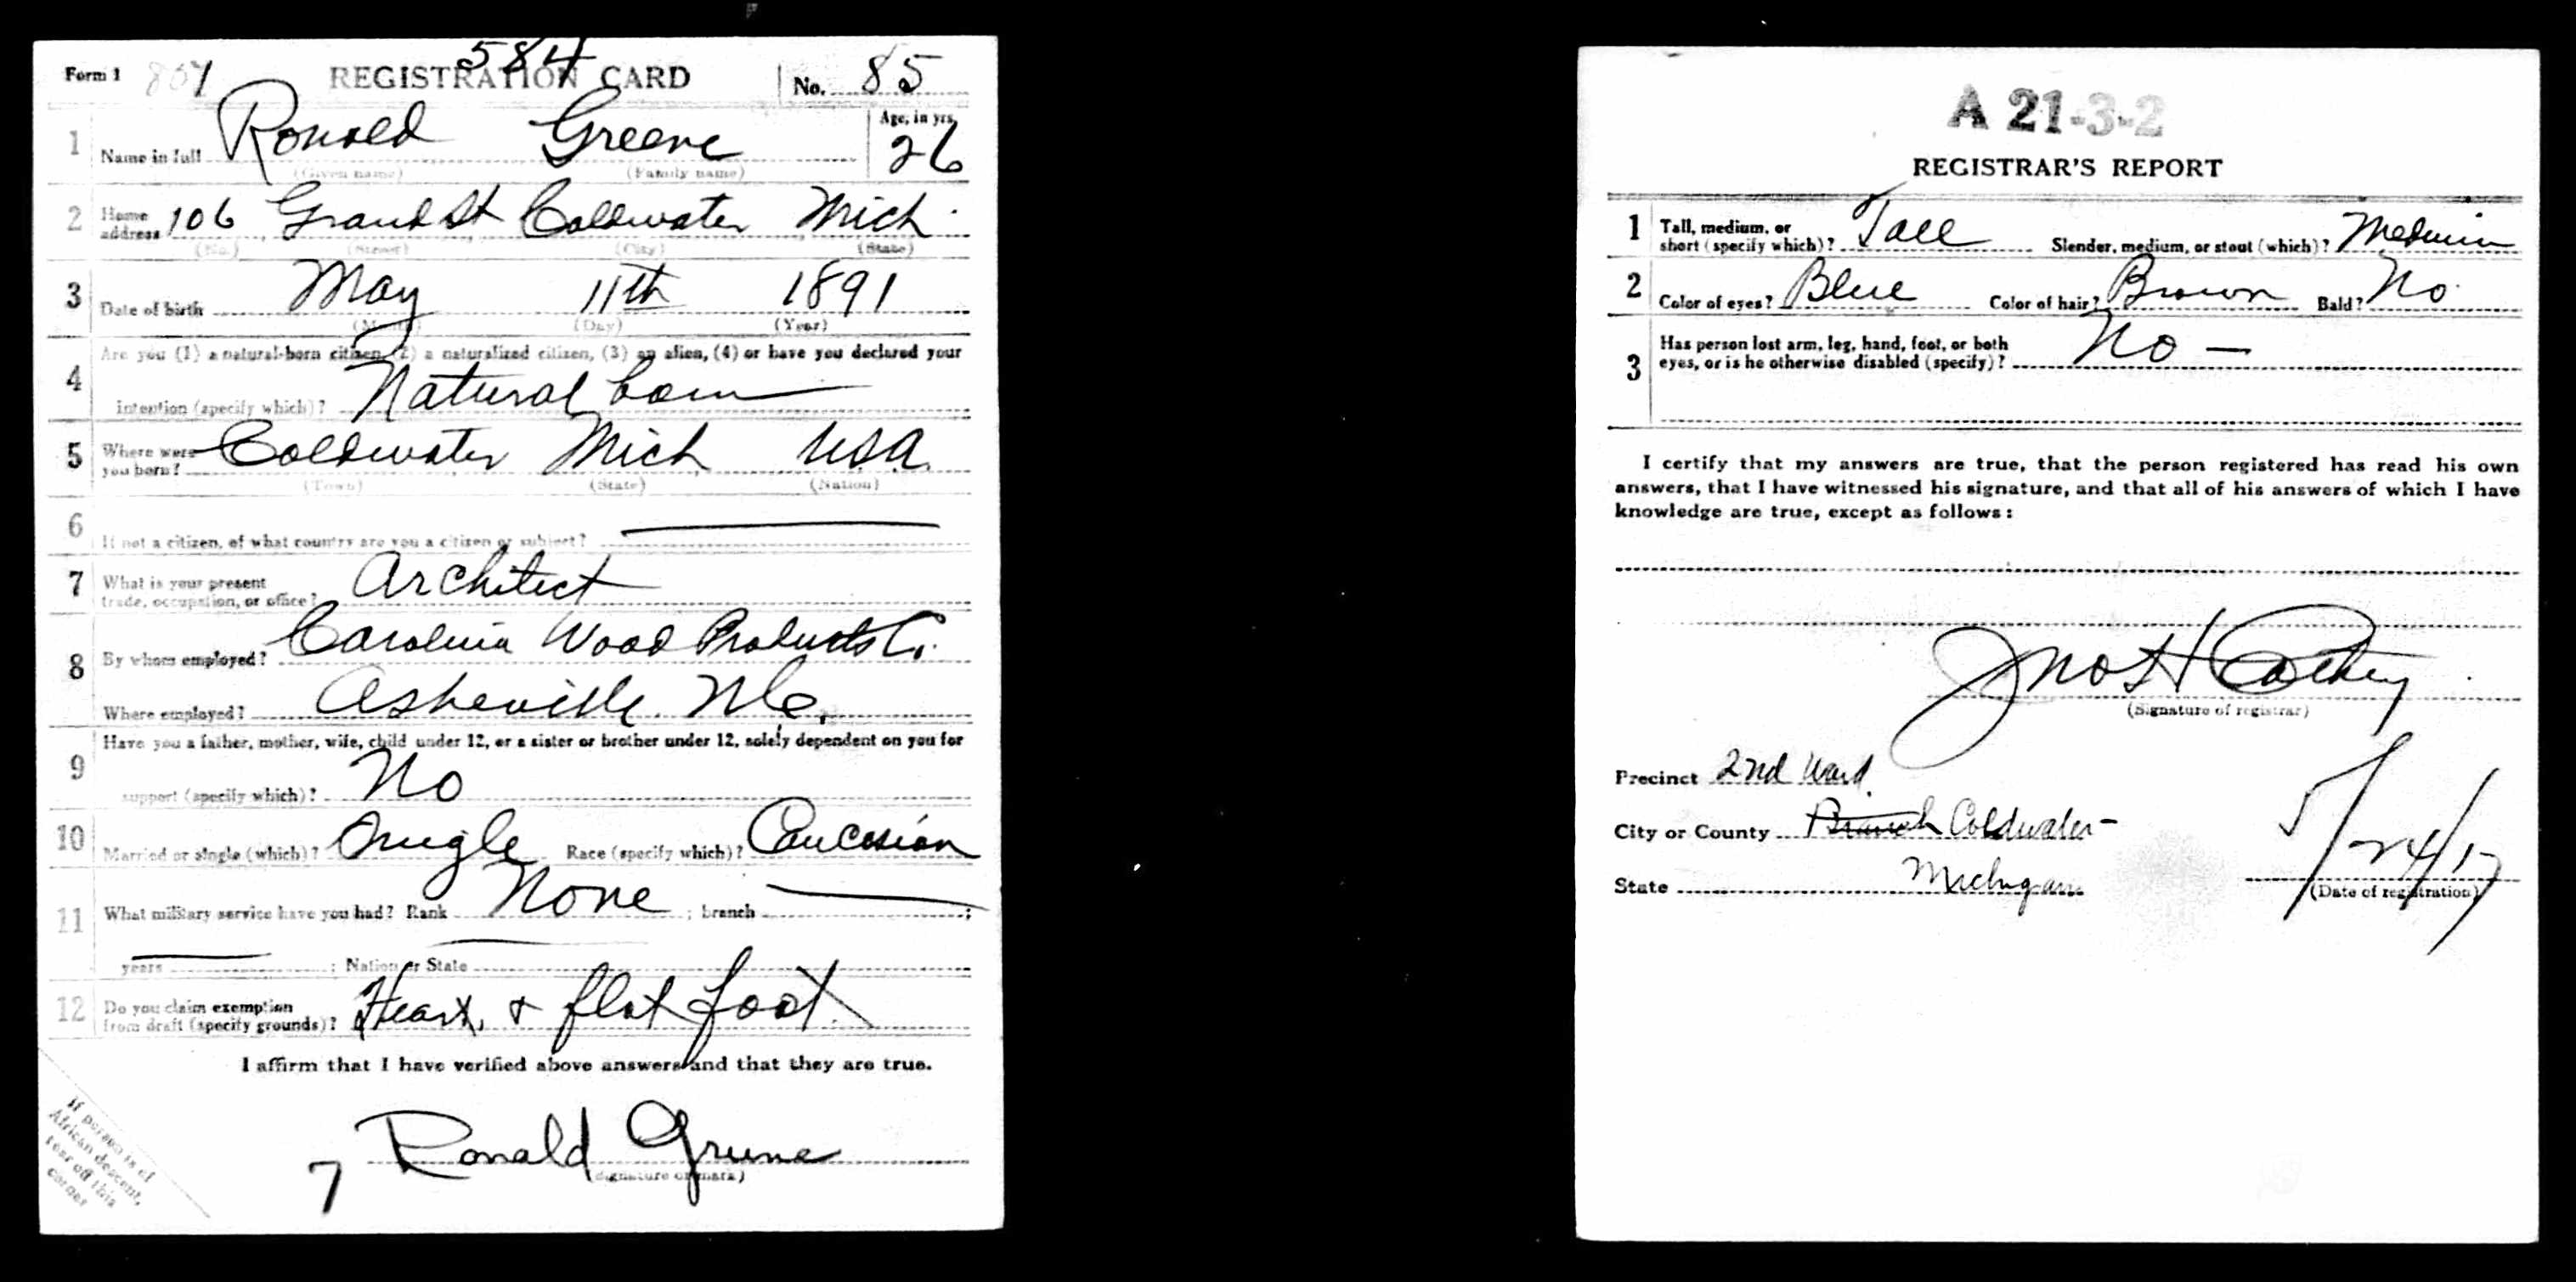 584
Form 1 REGISTRATION CARD No. 85
1 Name in full Ronald Greene Age, in yrs. 26
(Given name) (Family name)
2 Home address 106 Grand St Coldwater Mich.
(No.) (Street) (City) (State)
3 Date of birth May 11th 1891
(Month) (Day) (Year)
Are you (1) a natural-born citizen, (2) a naturalized citizen, (3) an alien, (4) or have you declared your
4 intention (specify which)? Natural born
5 Where were you born? Coldwater Mich U.S.A.
(Town) (State) (Nation)
6 If not a citizen, of what country are you a citizen or subject?
7 What is your present trade, occupation, or office? Architect
8 By whom employed? Carolina Wood Products Co.
Where employed? Asheville. N.C.
Have you a father, mother, wife, child under 12, or a sister or brother under 12, solely dependent on you for
9 support (specify which)? No
10 Married or single (which)? Single Race (specify which)? Caucasian
11 What military service have you had? Rank None ; branch ;
years ; Nation or State
12 Do you claim exemption from draft (specify grounds)? Heart, & flat foot.
I affirm that I have verified above answers and that they are true.
7 Ronald Greene
(Signature or mark)
If person is of
African descent,
tear off this
corner
A 21-3-2
REGISTRAR'S REPORT
1 Tall, medium, or short (specify which)? Tall Slender, medium, or stout (which)? Medium
2 Color of eyes? Blue Color of hair? Brown Bald? No
3 Has person lost arm, leg, hand, foot, or both eyes, or is he otherwise disabled (specify)? No —
I certify that my answers are true, that the person registered has read his own
answers, that I have witnessed his signature, and that all of his answers of which I have
knowledge are true, except as follows:
Jno H
(Signature of registrar)
Precinct 2nd Ward.
City or County Branch Coldwater -
State Michigan
5/24/17
(Date of registration)